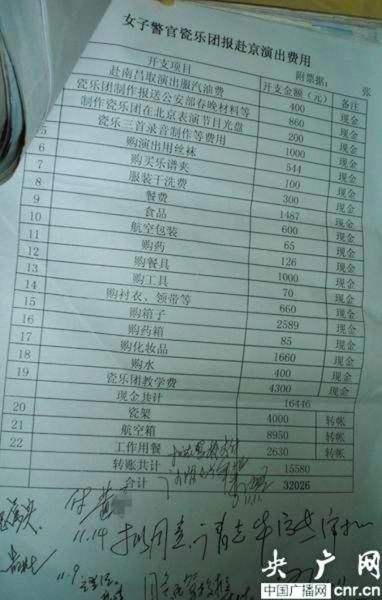 女子警官瓷乐团报赴京演出费用
附票据： 张
开支项目 开支金额（元） 备注
赴南昌取演出服汽油费 400 现金
瓷乐团制作报送公安部春晚材料等 860 现金
制作瓷乐团在北京表演节目光盘 200 现金
瓷乐三首录音制作等费用 1000 现金
5 购演出用丝袜 544 现金
6 购买乐谱夹 100 现金
7 服装干洗费 300 现金
8 餐费 1487 现金
9 食品 600 现金
10 航空包装 65 现金
11 购药 126 现金
12 购餐具 1000 现金
13 购工具 70 现金
14 购衬衣、领带等 660 现金
15 购箱子 2589 现金
16 购药箱 85 现金
17 购化妆品 1660 现金
18 购水 400 现金
瓷乐团教学费 4300 现金
现金共计 16446
20 瓷架 4000 转帐
21 航空箱 8950 转帐
22 工作用餐 2630 转帐
转账共计 15580
合计 32026
11.11.
11.14
11.9
央广网
中国广播网 cnr.cn